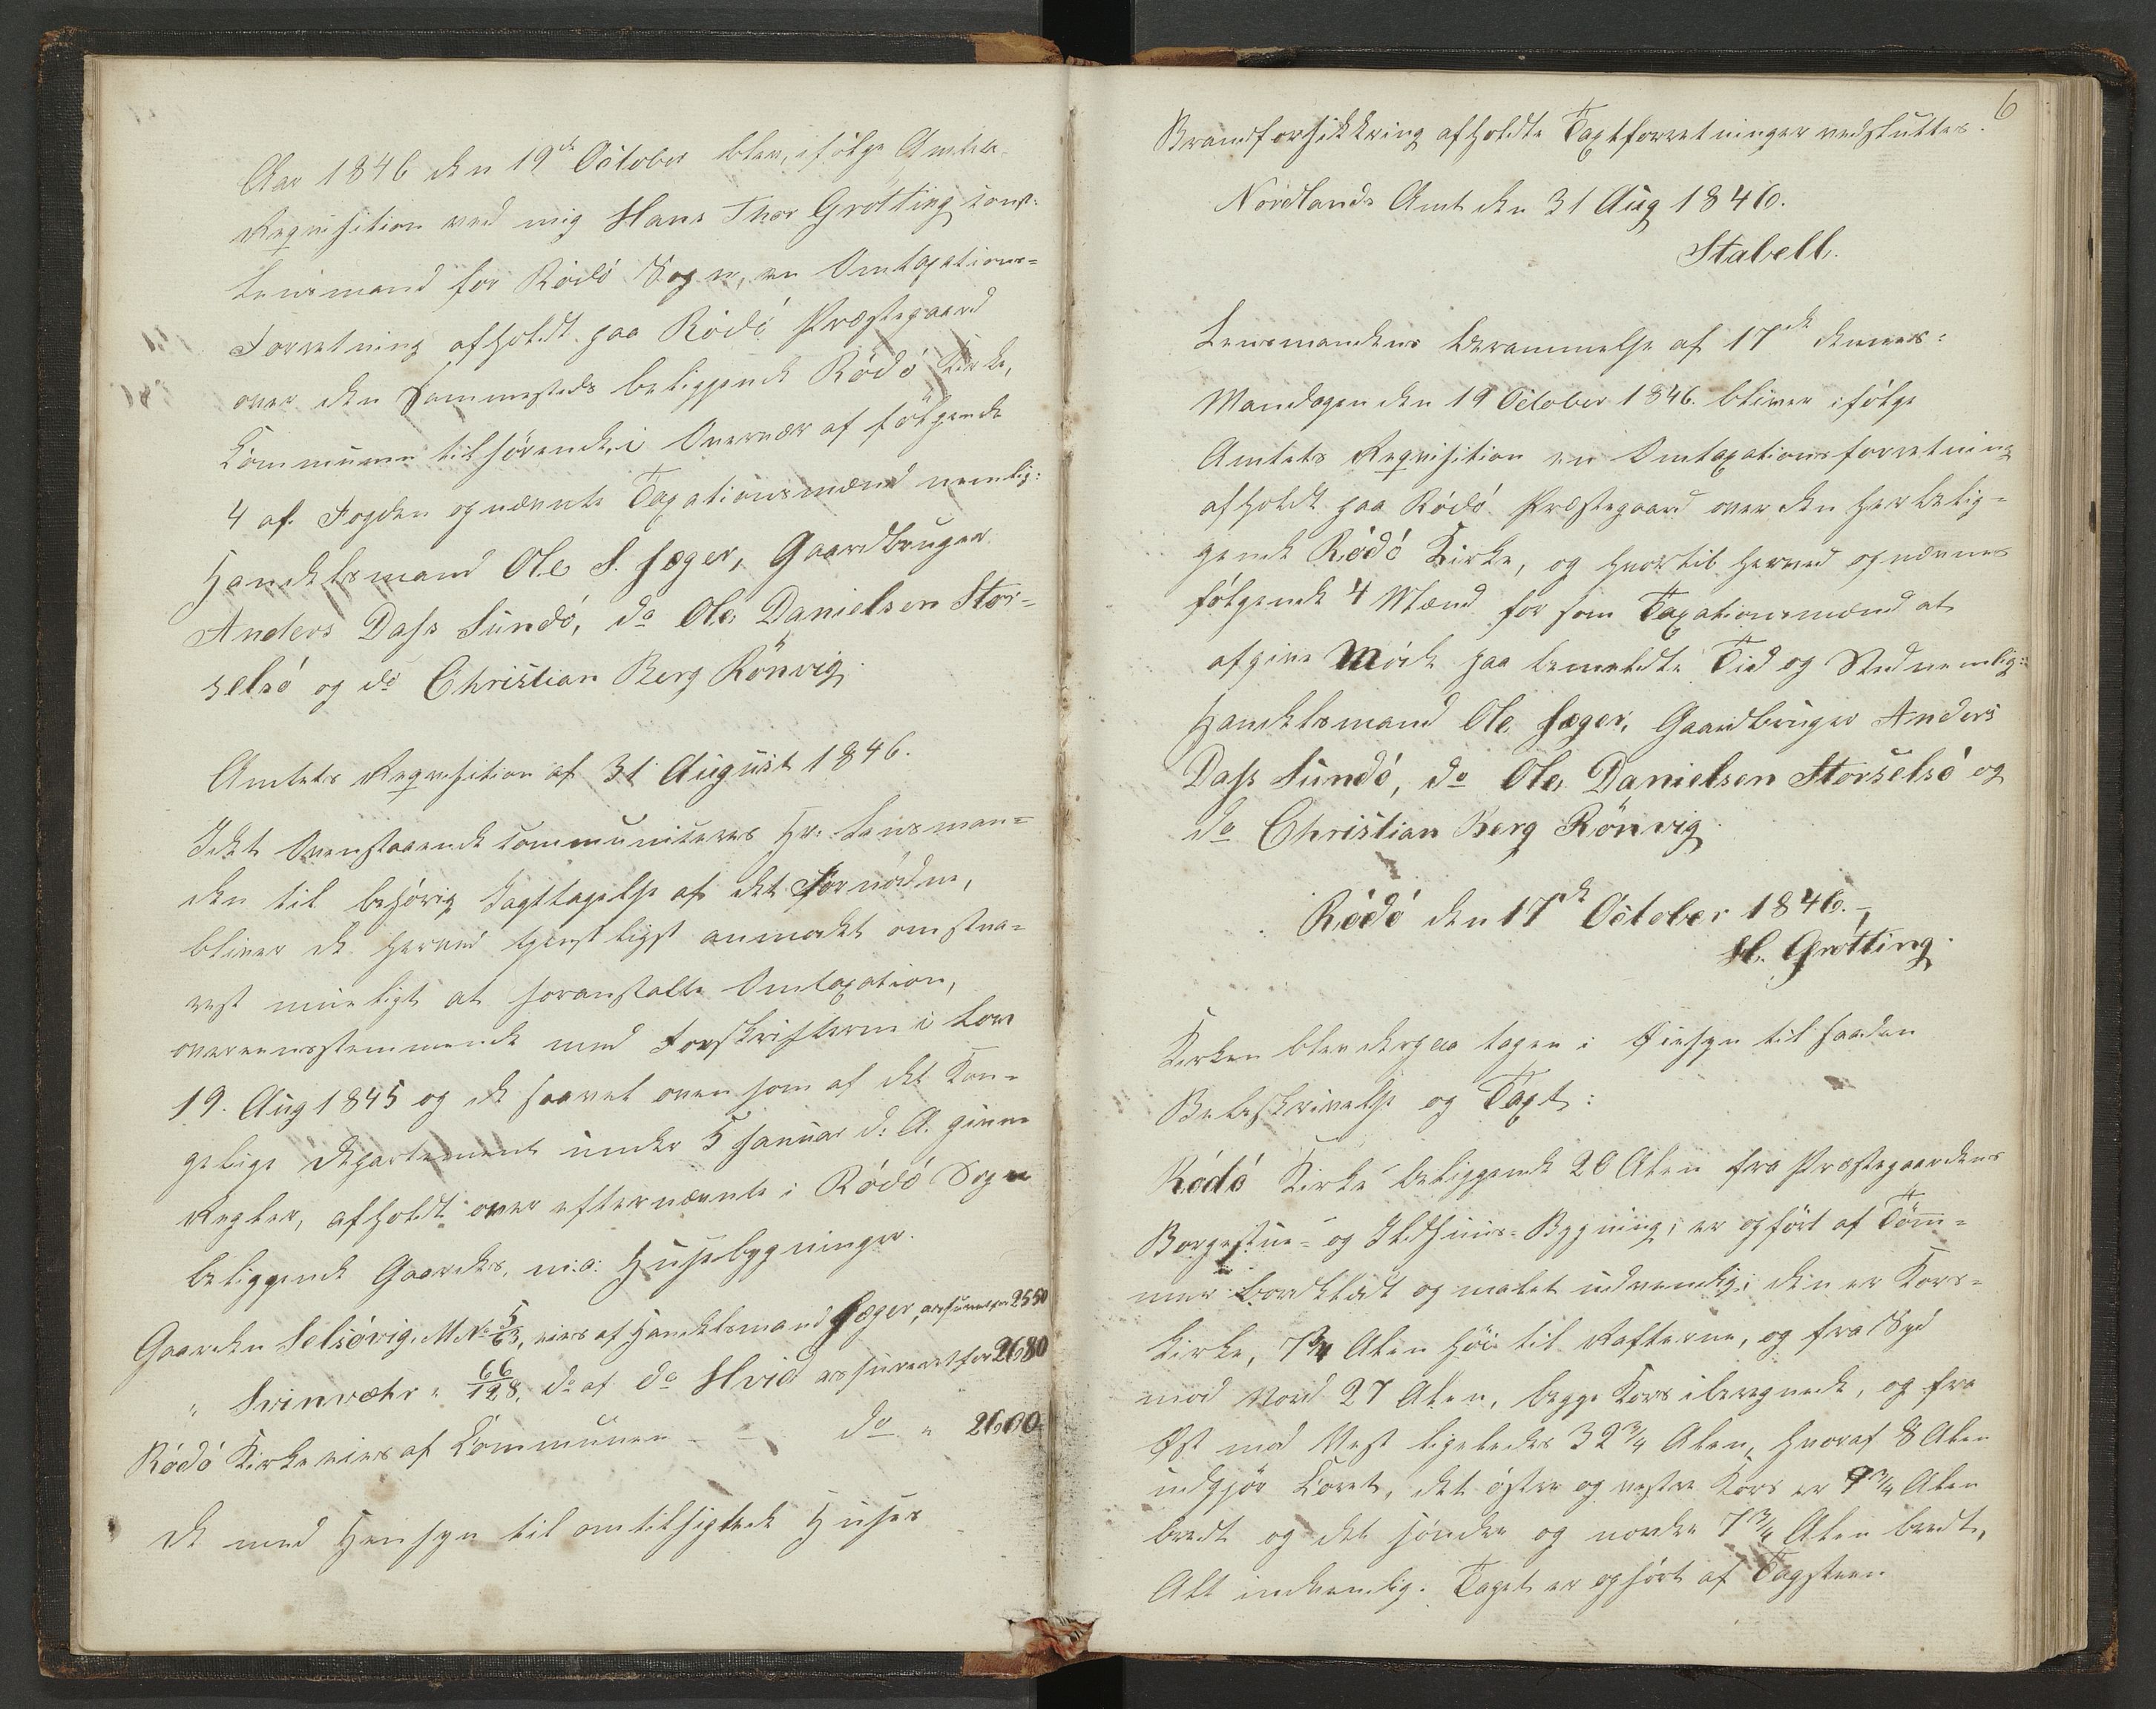 Aar 1846 den 19de October blev, ifölge Amtets
Reqvisition ved mig Hans Thor Grötting const:
Lensmand for Rödö Sogn, en Omtaxations-
Forretning afholdt paa Rödö Præstegaard
over den Sammesteds beliggende Rödö Kirke,
Communen tilhörende, i Overvær af fölgende
4 af Fogden opnævnte Taxationsmænd nemlig:
Handelsmand Ole S. Jæger, Gaardbruger
Anders Dass Sundö, do Ole Danielsen Stor-
selsö og do Christian Berg Rönvig.
Amtets Reqvisition af 31 August 1846.
Idet Ovenstaaende communiceres Hr. Lensman-
den til behörig Iagttagelse af det Fornödne,
bliver De herved tjenstligst anmodet om sna-
rest mueligt at foranstalte Omtaxation,
overeensstemmende med Forskrifterne i Lov
19. Aug 1845 og de saavel oven som af det Kon-
gelige Departement under 5 Januar d: A. givne
Regler, afholdt over efternævnte i Rödö Sogn
beliggende Gaardes, m: a: Husebygninger.
Gaarden Selsövig, M. No 5/63, eies af Handelsmand Jæger, assureret 2550
" Svinvær " 66/128, do af do Hvid assureret for 2680
Rödö Kirke eies af Communen - - do " 2600.
De med Hensyn til omtilsigtede Huses
6
Brandforsikkring afholdte Taxtforretninger vedsluttes.
Nordlands Amt den 31 Aug 1846.
Stabell.
Lensmandens Berammelse af 17de dennes:
Mandagen den 19 October 1846. bliver ifölge
Amtets Reqvisition en Omtaxationsforretning
afholdt paa Rödö Præstegaard over den her belig-
gende Rödö Kirke, og hvortil herved opnævnes
fölgende 4 Mænd for som Taxationsmænd at
afgive Möde paa bemeldte Tid og Sted nemlig:
Handelsmand Ole Jæger, Gaardbruger Anders
Dass Sundö, do Ole Danielsen Storselsö og
do Christian Berg Rönvig.
Rödö den 17de October 1846.
H. Grötting.
Kirken blev derpaa tagen i Öiesyn til saadan
Beskrivelse og Taxt:
Rödö Kirke beliggende 20 Alen fra Præstegaardens
Borgestue- og Ildhuus-Bygning; er opfört af Töm-
mer bordklædt og malet udvendig; den er Kors-
kirke, 7¾ Alen höi til Rafterne, og fra Syd
mod Nord 27 Alen, begge Kors iberegnede, og fra
Öst mod Vest ligeledes 32¾ Alen, hvoraf 8 Alen
udgjör Coret, det östre og vestre Kors er 9¾ Alen
bredt og det söndre og nordre 7¾ Alen bredt,
Alt indvendig. Taget er opfört af Tagsteen